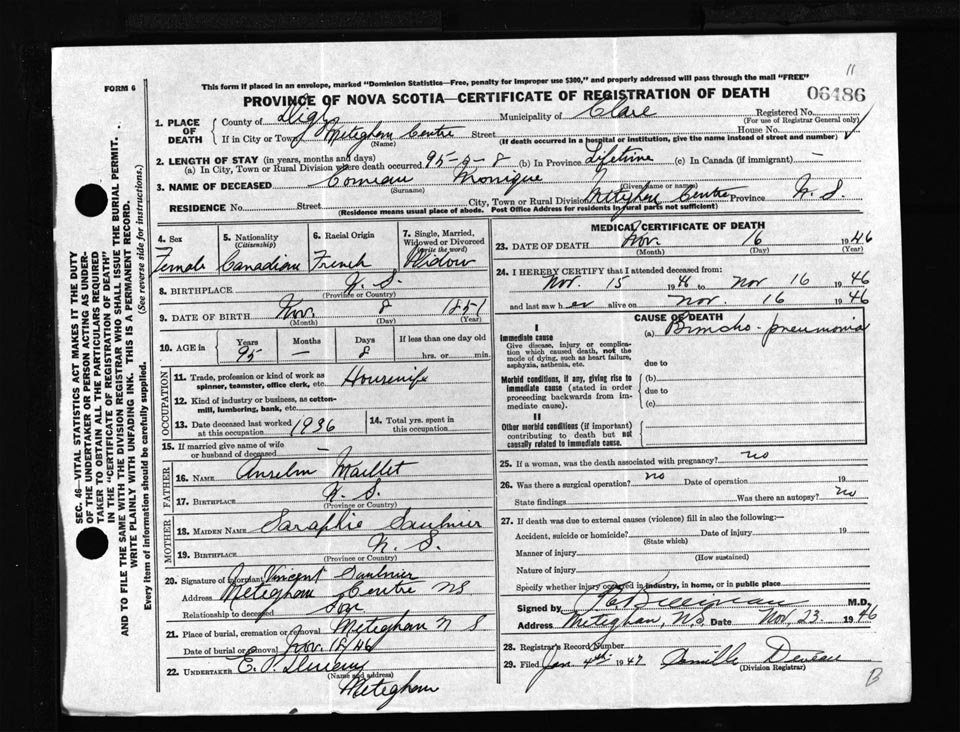 11
This form if placed in an envelope, marked "Dominion Statistics—Free, penalty for improper use $300," and properly addressed will pass through the mail "FREE"
FORM 6
PROVINCE OF NOVA SCOTIA—CERTIFICATE OF REGISTRATION OF DEATH
06486
1. PLACE OF DEATH
County of Digby Municipality of Clare Registered No.
(For use of Registrar General only)
If in City or Town Meteghan Centre Street House No.
(Name) (If death occurred in a hospital or institution, give the name instead of street and number)
2. LENGTH OF STAY (in years, months and days)
(a) In City, Town or Rural Division where death occurred 95-0-8 (b) In Province Lifetime (c) In Canada (if immigrant) —
3. NAME OF DECEASED Comeau Monique
(Surname) (Given name or names)
RESIDENCE No. Street City, Town or Rural Division Meteghan Centre Province N. S.
(Residence means usual place of abode. Post Office Address for residents in rural parts not sufficient)
4. Sex
Female
5. Nationality
(Citizenship)
Canadian
6. Racial Origin
French
7. Single, Married, Widowed or Divorced
(write the word)
Widow
8. BIRTHPLACE N. S.
(Province or Country)
9. DATE OF BIRTH Nov. 8 1851
(Month) (Day) (Year)
10. AGE in Years Months Days If less than one day old
95 — 8 hrs. or min.
OCCUPATION
11. Trade, profession or kind of work as spinner, teamster, office clerk, etc. Housewife
12. Kind of industry or business, as cotton-mill, lumbering, bank, etc.
13. Date deceased last worked at this occupation 1936
14. Total yrs. spent in this occupation
15. If married give name of wife or husband of deceased —
FATHER
16. NAME Anselm Maillet
17. BIRTHPLACE N. S.
(Province or Country)
MOTHER
18. MAIDEN NAME Saraphie Saulnier
19. BIRTHPLACE N. S.
(Province or Country)
20. Signature of informant Vincent Saulnier
Address Meteghan Centre NS
Relationship to deceased Son
21. Place of burial, cremation or removal Meteghan N S
Date of burial or removal Nov. 18/46
22. UNDERTAKER E. P.
(Name and address)
Meteghan
MEDICAL CERTIFICATE OF DEATH
23. DATE OF DEATH Nov. 16 1946
(Month) (Day)
24. I HEREBY CERTIFY that I attended deceased from:
Nov. 15 1946 to Nov 16 1946
and last saw h er alive on Nov. 16 1946
CAUSE OF DEATH
I
Immediate cause
Give disease, injury or complication which caused death, not the mode of dying, such as heart failure, asphyxia, asthenia, etc.
(a) Broncho-pneumonia
due to
Morbid conditions, if any, giving rise to immediate cause (stated in order proceeding backwards from immediate cause).
(b)
due to
(c)
II
Other morbid conditions (if important) contributing to death but not causally related to immediate cause.
25. If a woman, was the death associated with pregnancy? no
26. Was there a surgical operation? no Date of operation 19
State findings Was there an autopsy? no
27. If death was due to external causes (violence) fill in also the following:—
Accident, suicide or homicide? Date of injury 19
(State which)
Manner of injury
(How sustained)
Nature of injury
Specify whether injury occured in industry, in home, or in public place
Signed by M.D.
Address Meteghan, N.S. Date Nov. 23 1946
28. Registrar's Record Number
29. Filed Jan 4th 1947 Camille Deveau
(Division Registrar)
B
SEC. 46—VITAL STATISTICS ACT MAKES IT THE DUTY
OF THE UNDERTAKER OR PERSON ACTING AS UNDER-
TAKER TO OBTAIN ALL THE PARTICULARS REQUIRED
IN THE "CERTIFICATE OF REGISTRATION OF DEATH"
AND TO FILE THE SAME WITH THE DIVISION REGISTRAR WHO SHALL ISSUE THE BURIAL PERMIT.
WRITE PLAINLY WITH UNFADING INK. THIS IS A PERMANENT RECORD.
Every item of information should be carefully supplied. (See reverse side for instructions.)